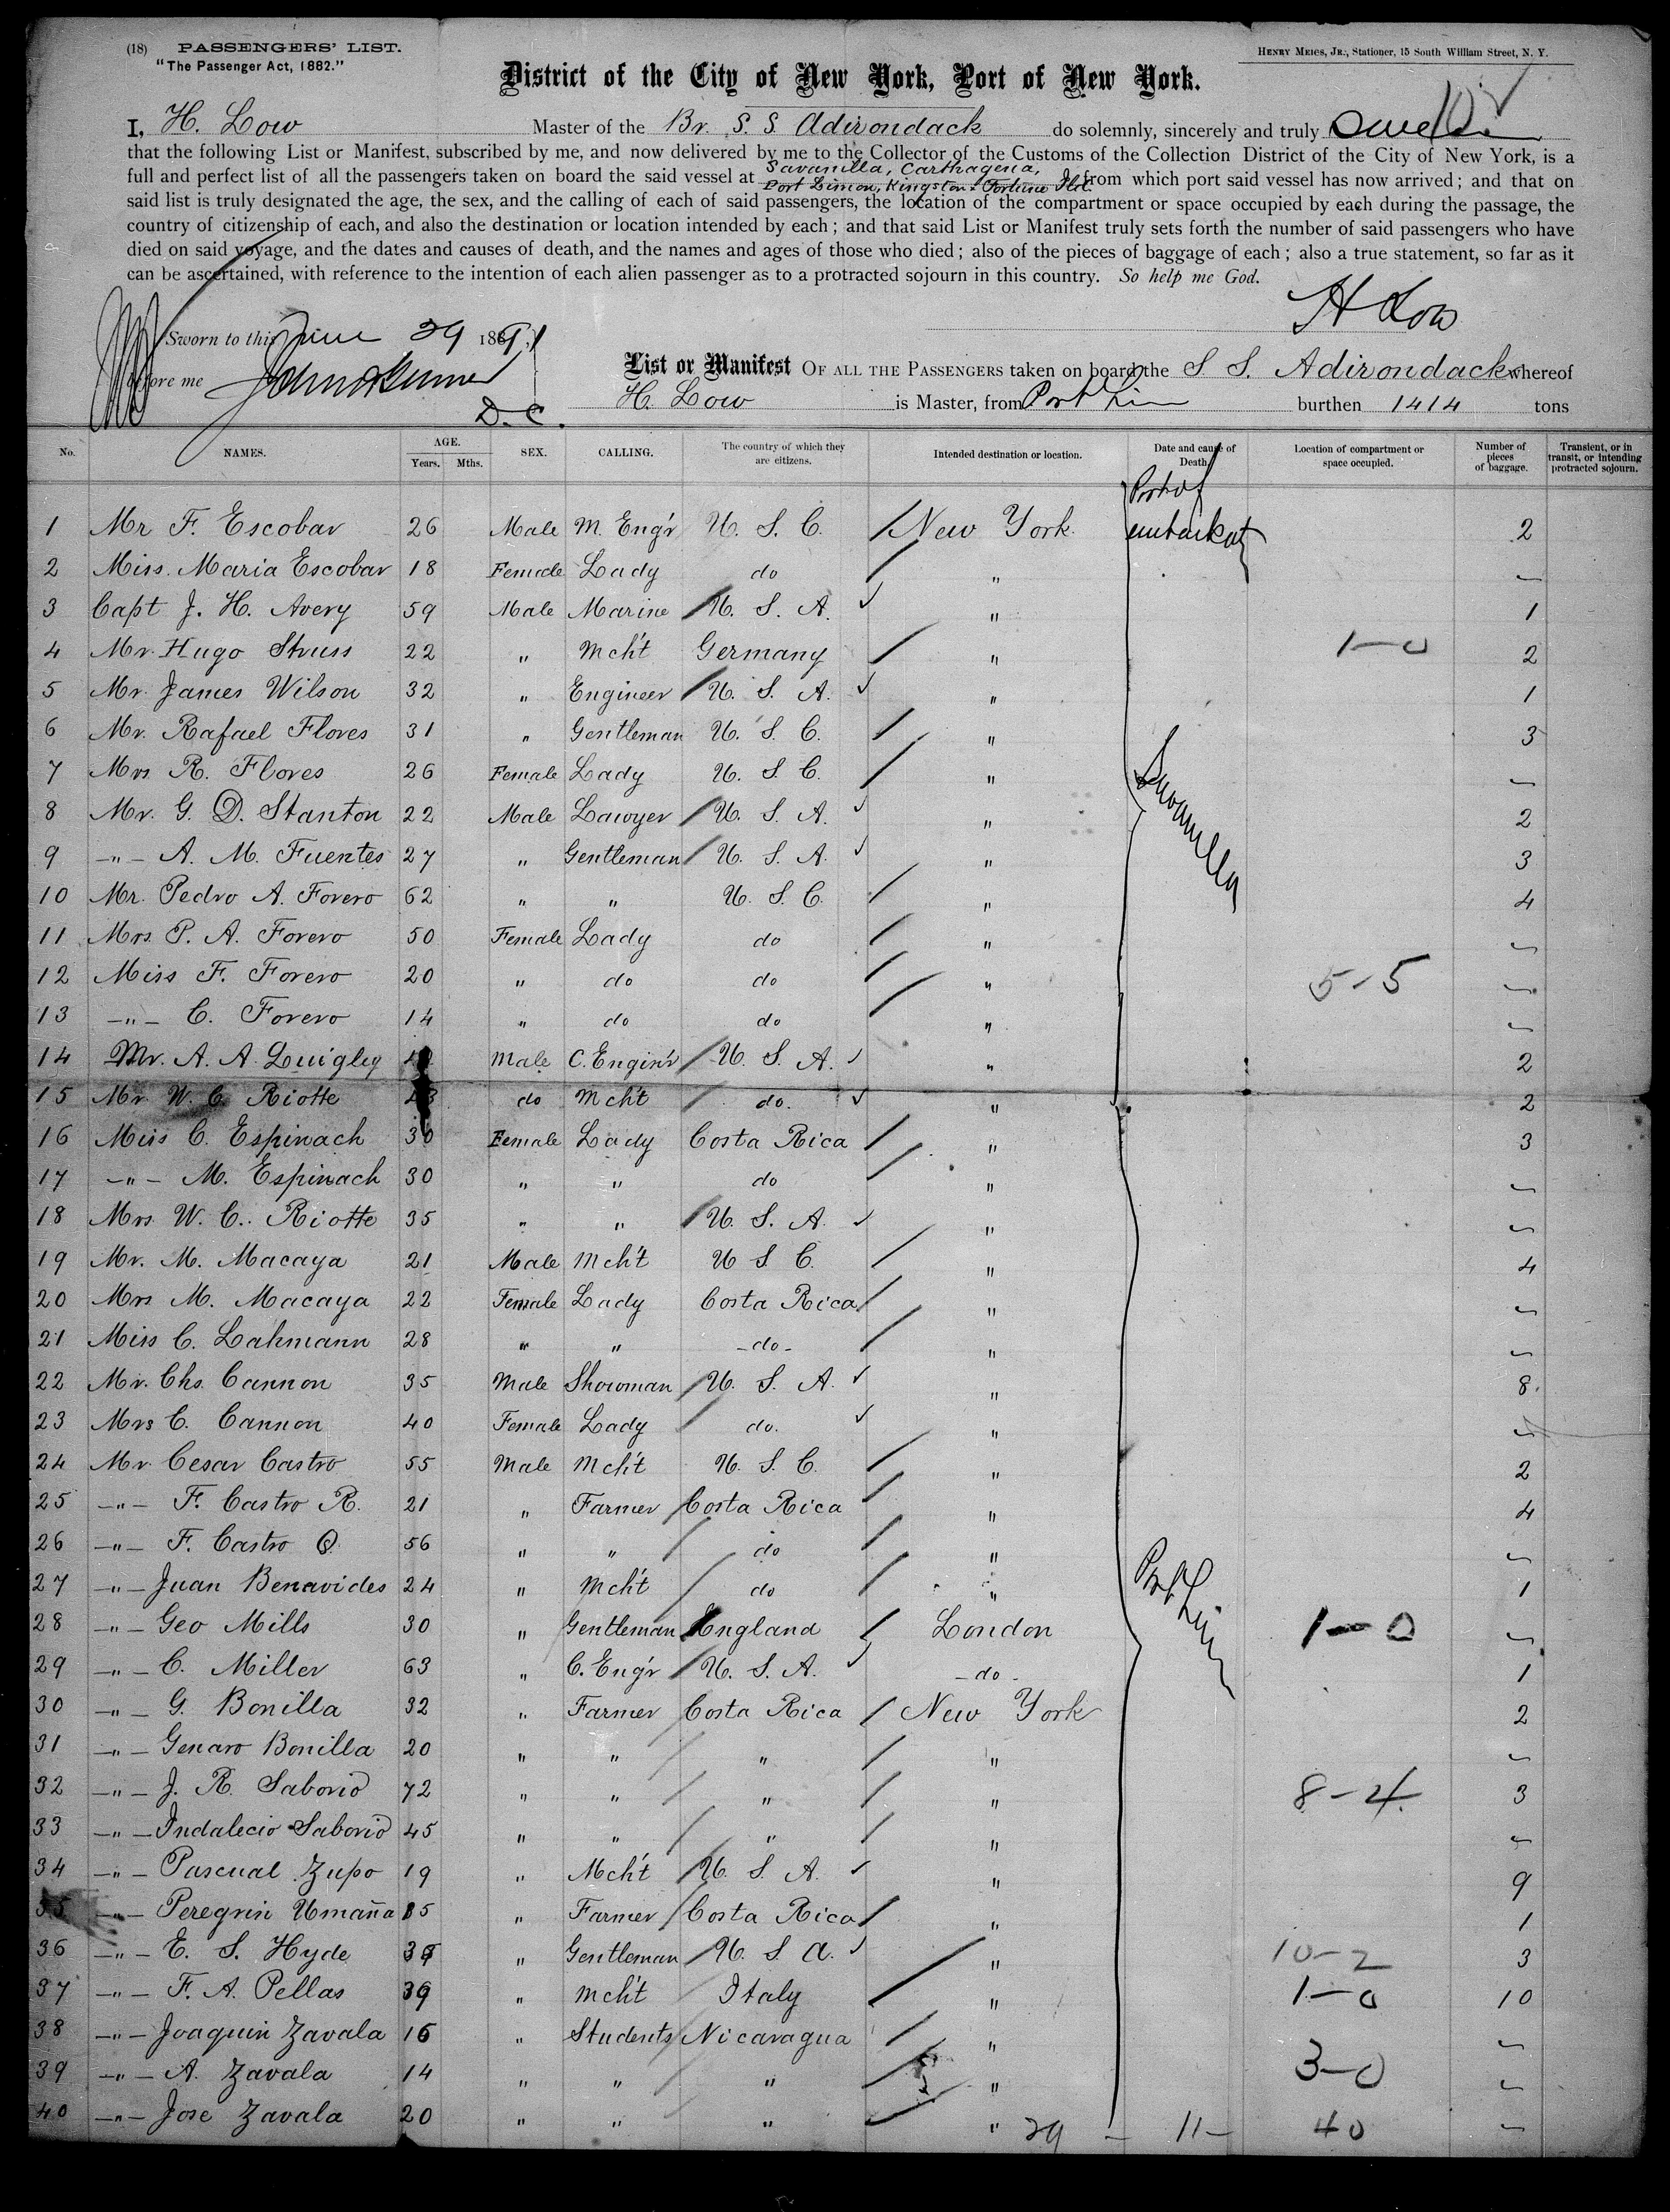 (18) PASSENGERS' LIST.
"The Passenger Act, 1882."
HENRY MEIGS, JR., Stationer, 15 South William Street, N. Y.
District of the City of New York, Port of New York.
I, H. Low Master of the Br. S. S. Adirondack do solemnly, sincerely and truly
that the following List or Manifest, subscribed by me, and now delivered by me to the Collector of the Customs of the Collection District of the City of New York, is a
Savanilla, Carthagena,
full and perfect list of all the passengers taken on board the said vessel at Port Limon, Kingston & Fortune Isl. from which port said vessel has now arrived; and that on
said list is truly designated the age, the sex, and the calling of each of said passengers, the location of the compartment or space occupied by each during the passage, the
country of citizenship of each, and also the destination or location intended by each; and that said List or Manifest truly sets forth the number of said passengers who have
died on said voyage, and the dates and causes of death, and the names and ages of those who died; also of the pieces of baggage of each; also a true statement, so far as it
can be ascertained, with reference to the intention of each alien passenger as to a protracted sojourn in this country. So help me God.
H Low
Sworn to this June 29 1891
before me
D. C.
List or Manifest OF ALL THE PASSENGERS taken on board the S S. Adirondack whereof
H. Low is Master, from Port Lim burthen 1414 tons
No. NAMES. AGE. Years. Mths. SEX. CALLING. The country of which they are citizens. Intended destination or location. Date and cause of Death. Location of compartment or space occupied. Number of pieces of baggage. Transient, or in transit, or intending protracted sojourn.
Port of
embarkat
1 Mr F. Escobar 26 Male M. Eng'r U. S. C. New York 2
2 Miss. Maria Escobar 18 Female Lady do "
3 Capt J. H. Avery 59 Male Marine U. S. A. " 1
4 Mr. Hugo Struss 22 " Mch't Germany " 1-0 2
5 Mr. James Wilson 32 " Engineer U. S. A. " 1
6 Mr. Rafael Flores 31 " Gentleman U. S. C. " 3
7 Mrs R. Flores 26 Female Lady U. S. C. "
Savanilla
8 Mr. G. D. Stanton 22 Male Lawyer U. S. A. " 2
9 -"- A. M. Fuentes 27 " Gentleman U. S. A. " 3
10 Mr. Pedro A. Forero 62 " " U. S. C. " 4
11 Mrs. P. A. Forero 50 Female Lady do "
12 Miss F. Forero 20 " do do " 5-5
13 -"- C. Forero 14 " do do "
14 Mr. A. A. Quigley Male C. Engin'r U. S. A. " 2
15 Mr W. C. Riotte do Mch't do. " 2
16 Miss C. Espinach 30 Female Lady Costa Rica " 3
17 -"- M. Espinach 30 " " do "
18 Mrs W. C. Riotte 35 " " U. S. A. "
19 Mr. M. Macaya 21 Male Mch't U S C. " 4
20 Mrs M. Macaya 22 Female Lady Costa Rica "
21 Miss C. Lahmann 28 " " -do- "
22 Mr. Chs. Cannon 35 Male Showman U. S. A. " 8
23 Mrs C. Cannon 40 Female Lady do. "
24 Mr. Cesar Castro 55 Male Mch't U. S. C. " 2
25 -"- F. Castro R. 21 " Farmer Costa Rica " 4
26 -"- F. Castro Q. 56 " " do "
27 -"- Juan Benavides 24 " Mch't do " 1
Port Lim
28 -"- Geo Mills 30 " Gentleman England London 1-0
29 -"- C. Miller 63 " C. Eng'r U. S. A. -do- 1
30 -"- G. Bonilla 32 " Farmer Costa Rica New York 2
31 -"- Genaro Bonilla 20 " " " "
32 -"- J. R. Saborio 72 " " " " 8-4 3
33 -"- Indalecio Saborio 45 " " " "
34 -"- Pascual Zupo 19 " Mch't U. S. A. " 9
35 -"- Peregrin Umaña " Farmer Costa Rica " 1
36 -"- E. S. Hyde " Gentleman U. S. A. " 10-2 3
37 -"- F. A. Pellas 39 " Mch't Italy " 1-0 10
38 -"- Joaquin Zavala 16 " Students Nicaragua "
39 -"- A. Zavala 14 " " " " 3-0
40 -"- Jose Zavala 20 " " " "
29 - 11- 40